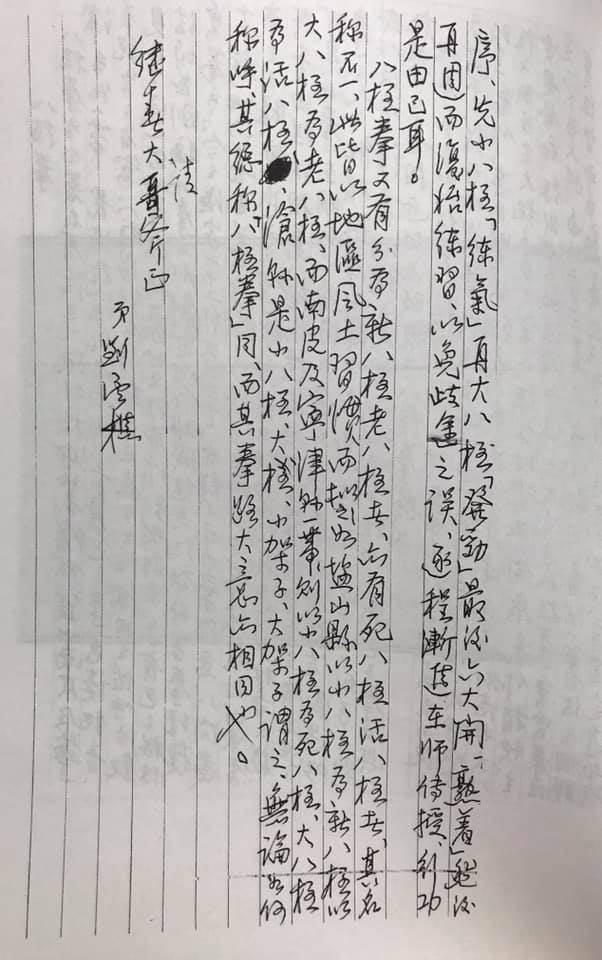 序、先小八極「練氣」再大八極「發勁」最後六大開、「熟着」然後
再週而復始練習、以免歧途之誤、逐程漸進在師傳授、列功
是由己耳。
八極拳又有分為新八極老八極者、亦有死八極活八極者、其名
稱不一、此皆以地區風土習慣而擬之如鹽山縣以小八極為新八極以
大八極為老八極、而南皮及寧津縣一帶、則以小八極為死八極、大八極
為活八極、滄縣是小八極、大極、小架子、大架子謂之、無論如何
稱呼其總稱「八極拳」同、而其拳路大意亦相同也。
請
継春大哥斧正
弟劉雲樵